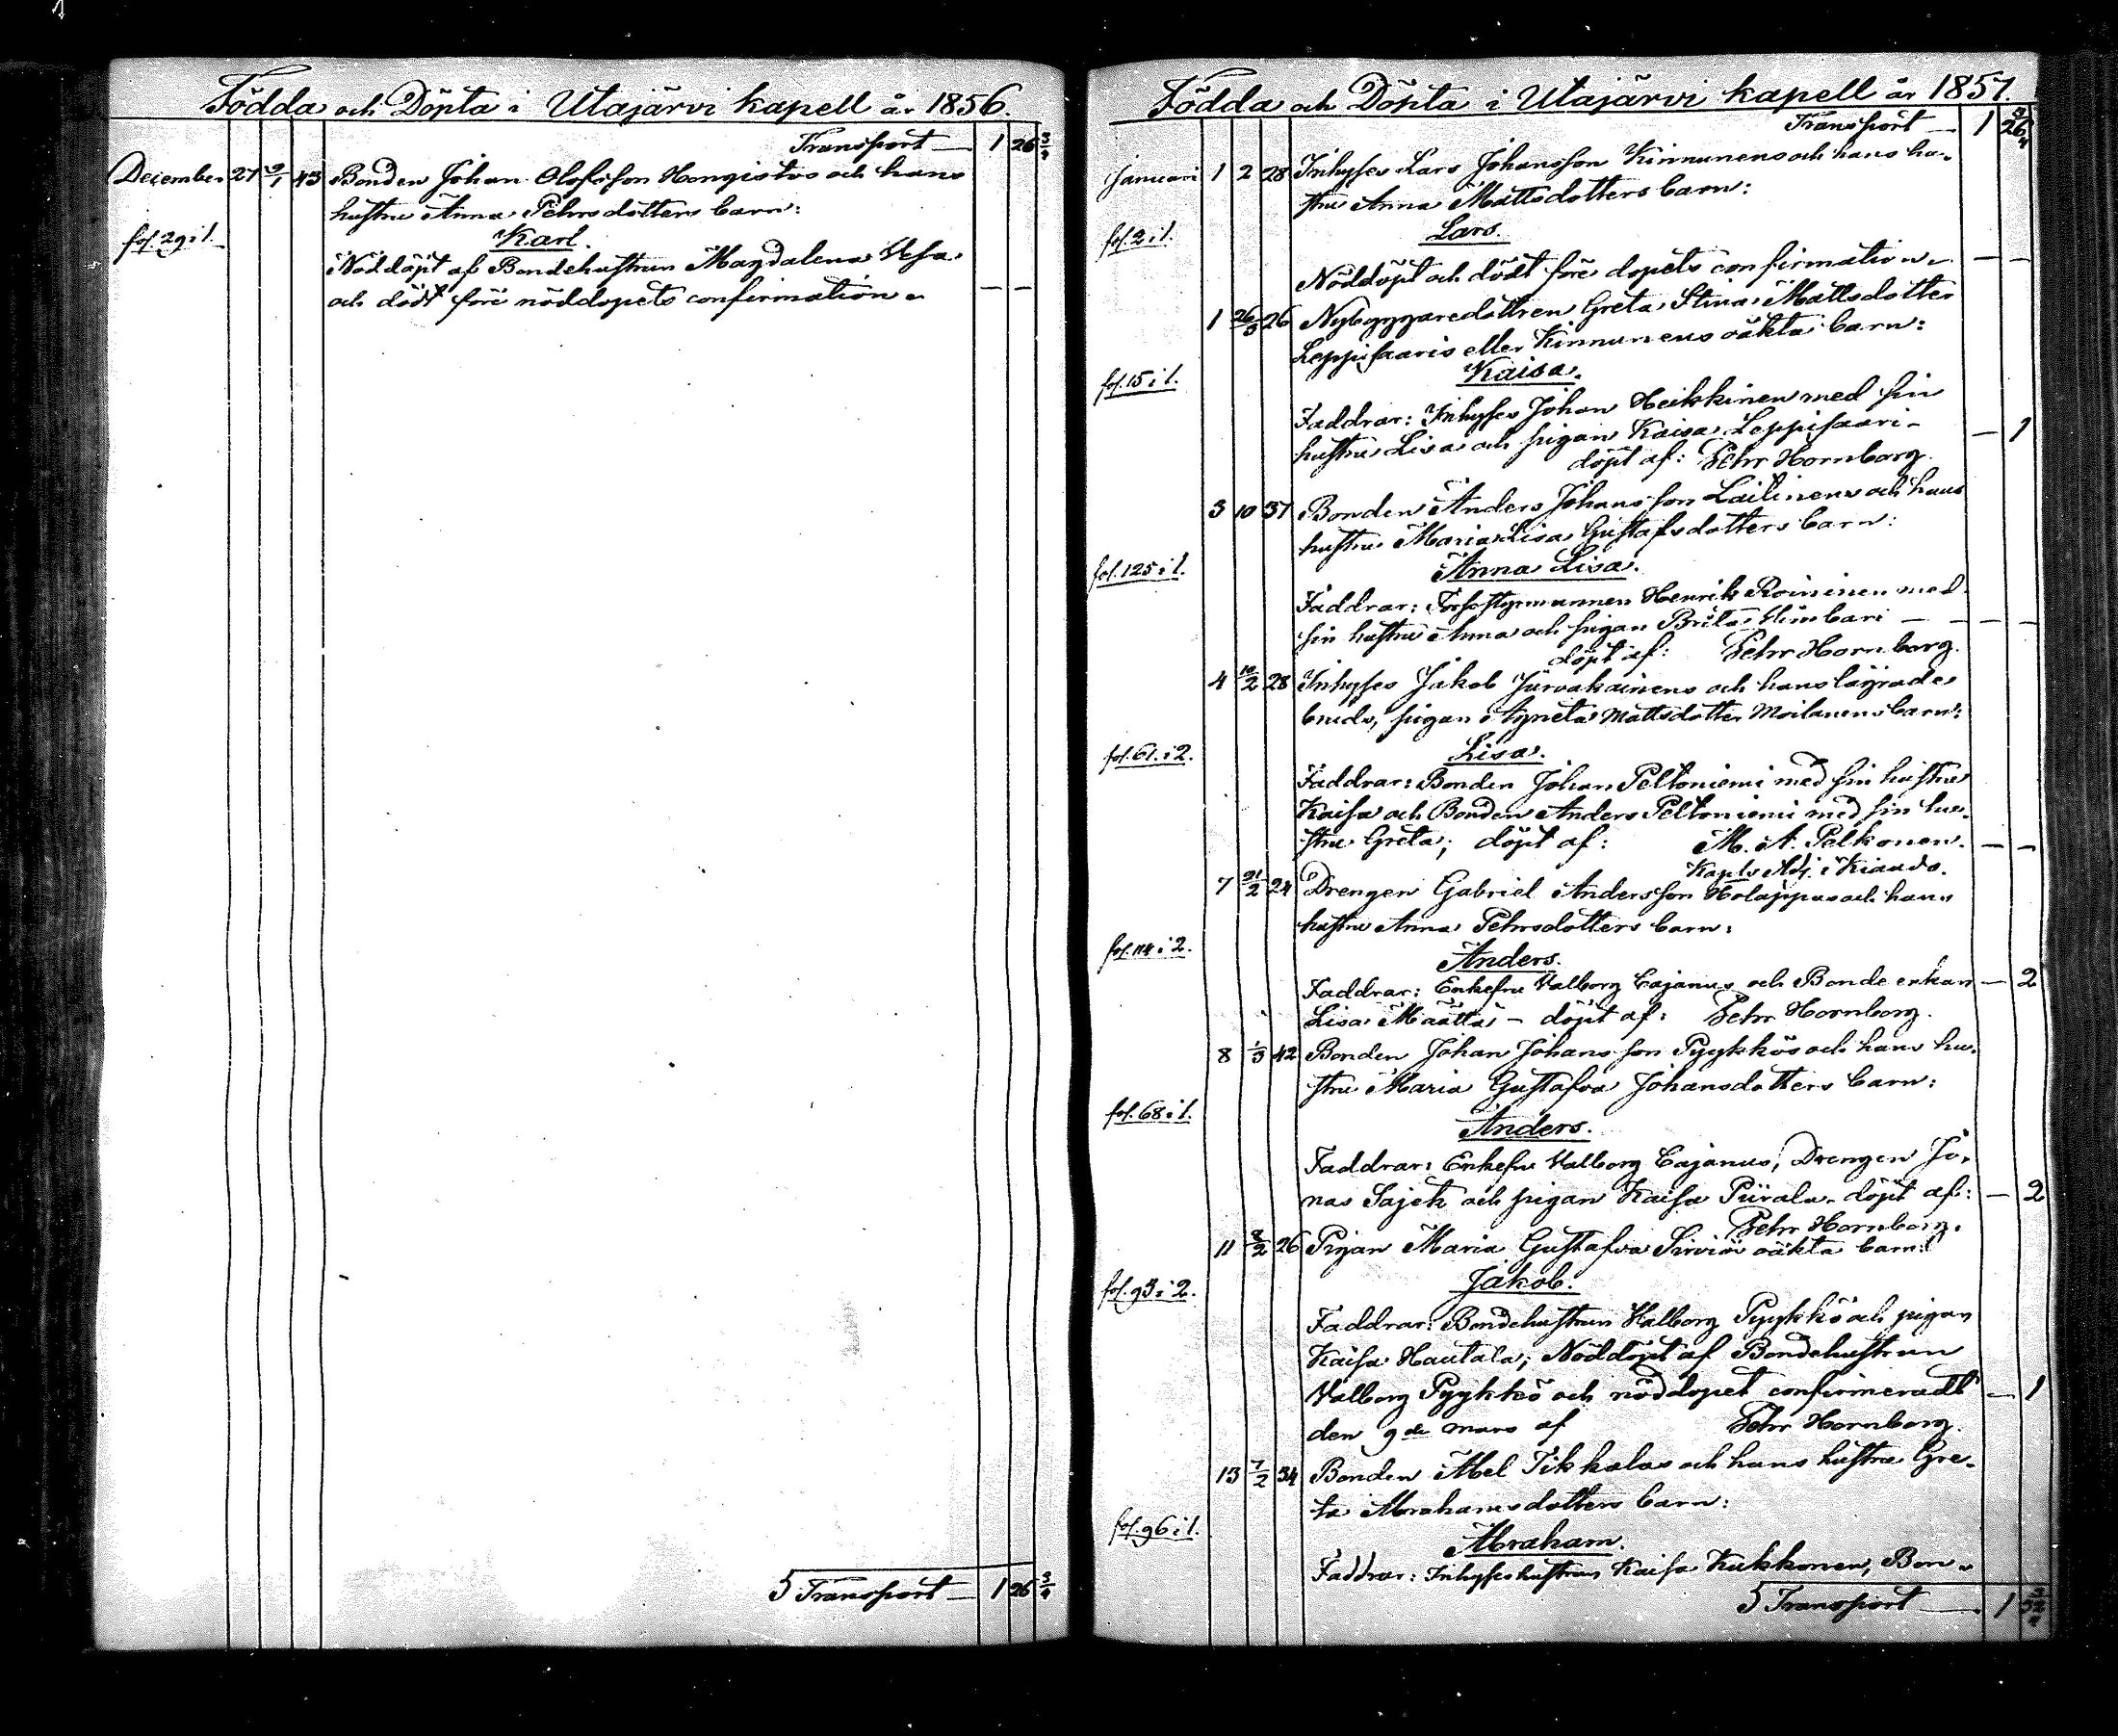 Födda och Döpta i Utajärvi kapell år 1856.
Transport — 1 26 3/4
December 27 3/1 43 Bonden Johan Olofsson Hongistos och hans
hustru Anna Pehrsdotters barn:
fol. 29 i 1. Karl.
Nöddöpt af Bondehustrun Magdalena Vesa
och dödt före nöddopets confirmation. — —
5 Transport — 1 26 3/4
Födda och Döpta i Utajärvi kapell år 1857.
Transport — 1 26 3/4
Januari 1 2 28 Inhyses Lars Johansson Kinnunens och hans hu-
stru Anna Mattsdotters barn:
fol. 2 i 1. Lars.
Nöddöpt och dödt före dopets confirmation — —
1 26/3 26 Nybyggaredottren Greta Stina Mattsdotter
Leppisaaris eller Kinnunens oäkta barn:
fol. 15 i 1. Kaisa.
Faddrar: Inhyses Johan Heikkinen med sin
hustru Lisa och pigan Kaisa Leppisaari — — 1
döpt af: Pehr Hornborg.
3 10 37 Bonden Anders Johansson Laitinens och hans
hustru Maria Lisa Gustafsdotters barn:
fol. 125 i 1. Anna Lisa.
Faddrar: Forsstyrmannen Henrik Roininen med
sin hustru Anna och pigan Brita Vimbari — — — —
döpt af: Pehr Hornborg.
4 10/2 28 Inhyses Jakob Jurvakainens och hans lägrade
bruds, pigan Agneta Mattsdotter Moilanens barn:
fol. 61. i 2. Lisa.
Faddrar: Bonden Johan Peltoniemi med sin hustru
Kaisa och Bonden Anders Peltoniemi med sin hu-
stru Greta; döpt af: M. A. Pelkonen. — —
Kapls Adj. i Kiando.
7 21/2 24 Drengen Gabriel Andersson Holappas och hans
hustru Anna Pehrsdotters barn:
fol. 114 i 2. Anders.
Faddrar: Enkefru Valborg Cajanus och Bonde enkan — 2
Lisa Määttä — döpt af: Pehr Hornborg.
8 1/3 42 Bonden Johan Johansson Pyykkös och hans hu-
stru Maria Gustafva Johansdotters barn:
fol. 68 i 1. Anders.
Faddrar: Enkefru Valborg Cajanus, Drengen Jo-
nas Sajek och pigan Kaisa Piirala. döpt af: — 2
Pehr Hornborg.
11 8/2 26 Pigan Maria Gustafva Sirviös oäkta barn:
fol. 93 i 2. Jakob.
Faddrar: Bondehustrun Valborg Pyykkö och pigan
Kaisa Hautala; Nöddöpt af Bondehustrun
Valborg Pyykkö och nöddopet confirmeradt — 1
den 9de mars af Pehr Hornborg.
13 7/2 34 Bonden Abel Tikkalas och hans hustru Gre-
ta Abrahamsdotters barn:
fol. 96 i 1. Abraham.
Faddrar: Inhyseshustrun Kaisa Kukkonen, Bon-
5 Transport — 1 32 3/4